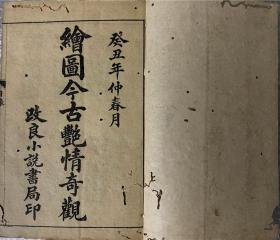 癸丑年仲春月
繪圖今古艷情奇觀
改良小說書局印